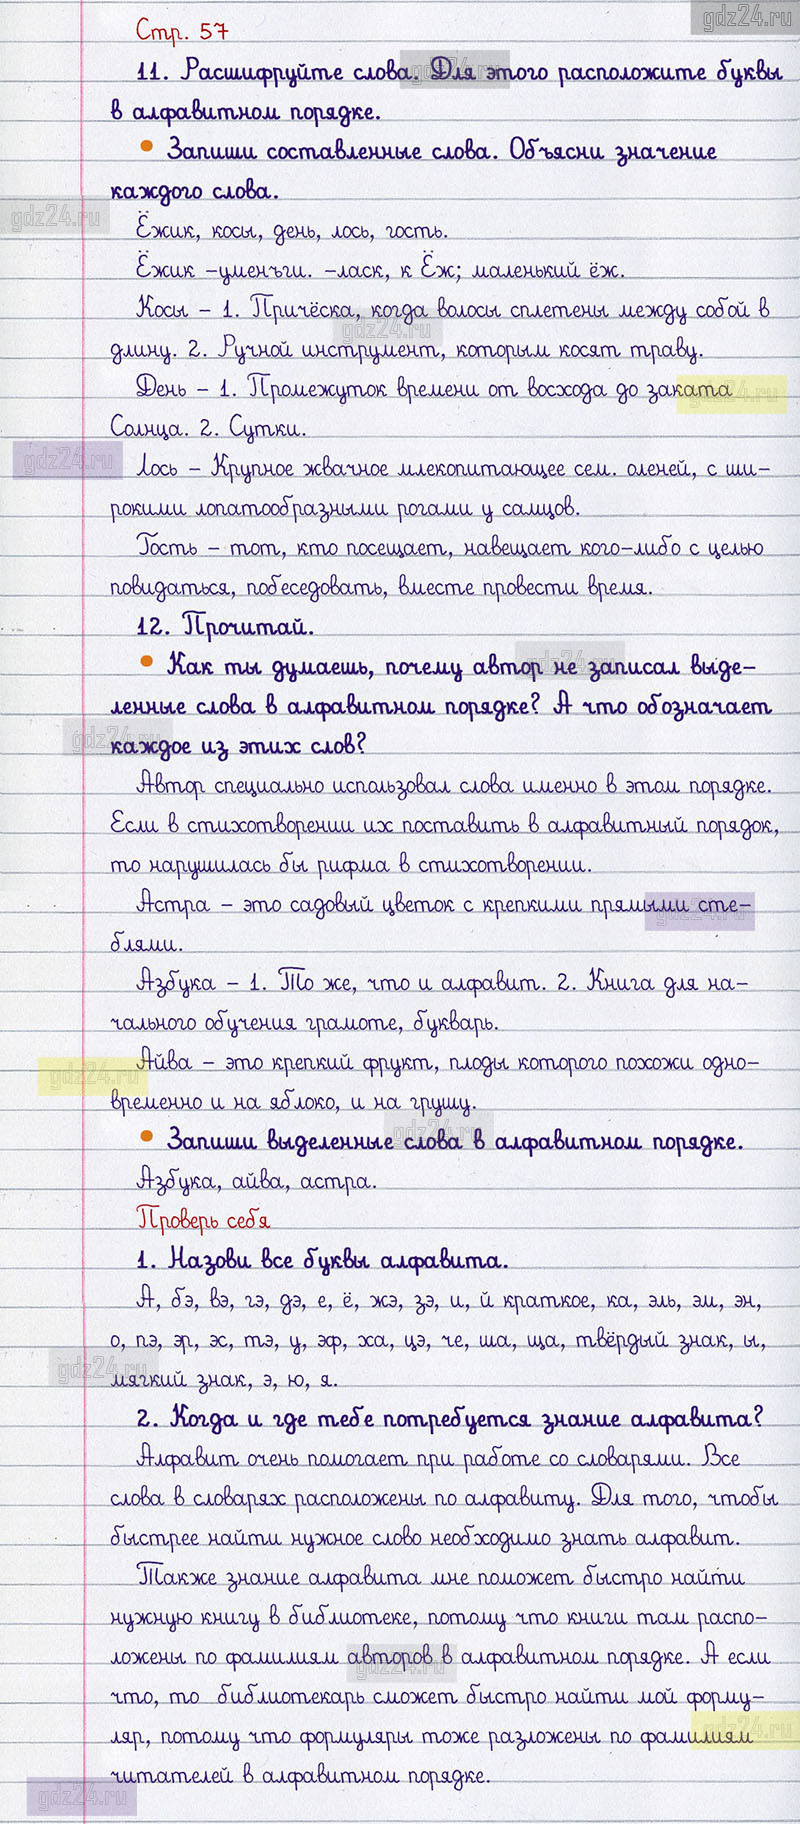 gdz24.ru
Стр. 57
11. Расшифруйте слова. Для этого расположите буквы
gdz24.ru
в алфавитном порядке.
• Запиши составленные слова. Объясни значение
каждого слова.
gdz24.ru
Ёжик, косы, день, лось, гость.
Ёжик -уменьги. -ласк, к Ёж; маленький ёж.
Косы - 1. Причёска, когда волосы сплетены между собой в
gdz24.ru
длину. 2. Ручной инструмент, которым косят траву.
День - 1. Промежуток времени от восхода до заката
gdz24.ru
Солнца. 2. Сутки.
gdz24.ru
Лось - Крупное жвачное млекопитающее сем. оленей, с ши-
рокими лопатообразными рогами у самцов.
Гость - тот, кто посещает, навещает кого-либо с целью
повидаться, побеседовать, вместе провести время.
12. Прочитай.
gdz24.ru
• Как ты думаешь, почему автор не записал выде-
ленные слова в алфавитном порядке? А что обозначает
gdz24.ru
каждое из этих слов?
Автор специально использовал слова именно в этом порядке.
Если в стихотворении их поставить в алфавитный порядок,
то нарушилась бы рифма в стихотворении.
Астра - это садовый цветок с крепкими прямыми сте-
gdz24.ru
блями.
Азбука - 1. То же, что и алфавит. 2. Книга для на-
чального обучения грамоте, букварь.
Айва - это крепкий фрукт, плоды которого похожи одно-
gdz24.ru
временно и на яблоко, и на грушу.
gdz24.ru
• Запиши выделенные слова в алфавитном порядке.
Азбука, айва, астра.
Проверь себя
1. Назови все буквы алфавита.
А, бэ, вэ, гэ, дэ, е, ё, жэ, зэ, и, й краткое, ка, эль, эм, эн,
о, пэ, эр, эс, тэ, у, эф, ха, цэ, че, ша, ща, твёрдый знак, ы,
gdz24.ru
мягкий знак, э, ю, я.
2. Когда и где тебе потребуется знание алфавита?
Алфавит очень помогает при работе со словарями. Все
слова в словарях расположены по алфавиту. Для того, чтобы
быстрее найти нужное слово необходимо знать алфавит.
Также знание алфавита мне поможет быстро найти
нужную книгу в библиотеке, потому что книги там распо-
ложены по фамилиям авторов в алфавитном порядке. А если
gdz24.ru
что, то библиотекарь сможет быстро найти мой форму-
gdz24.ru
ляр, потому что формуляры тоже разложены по фамилиям
читателей в алфавитном порядке.
gdz24.ru